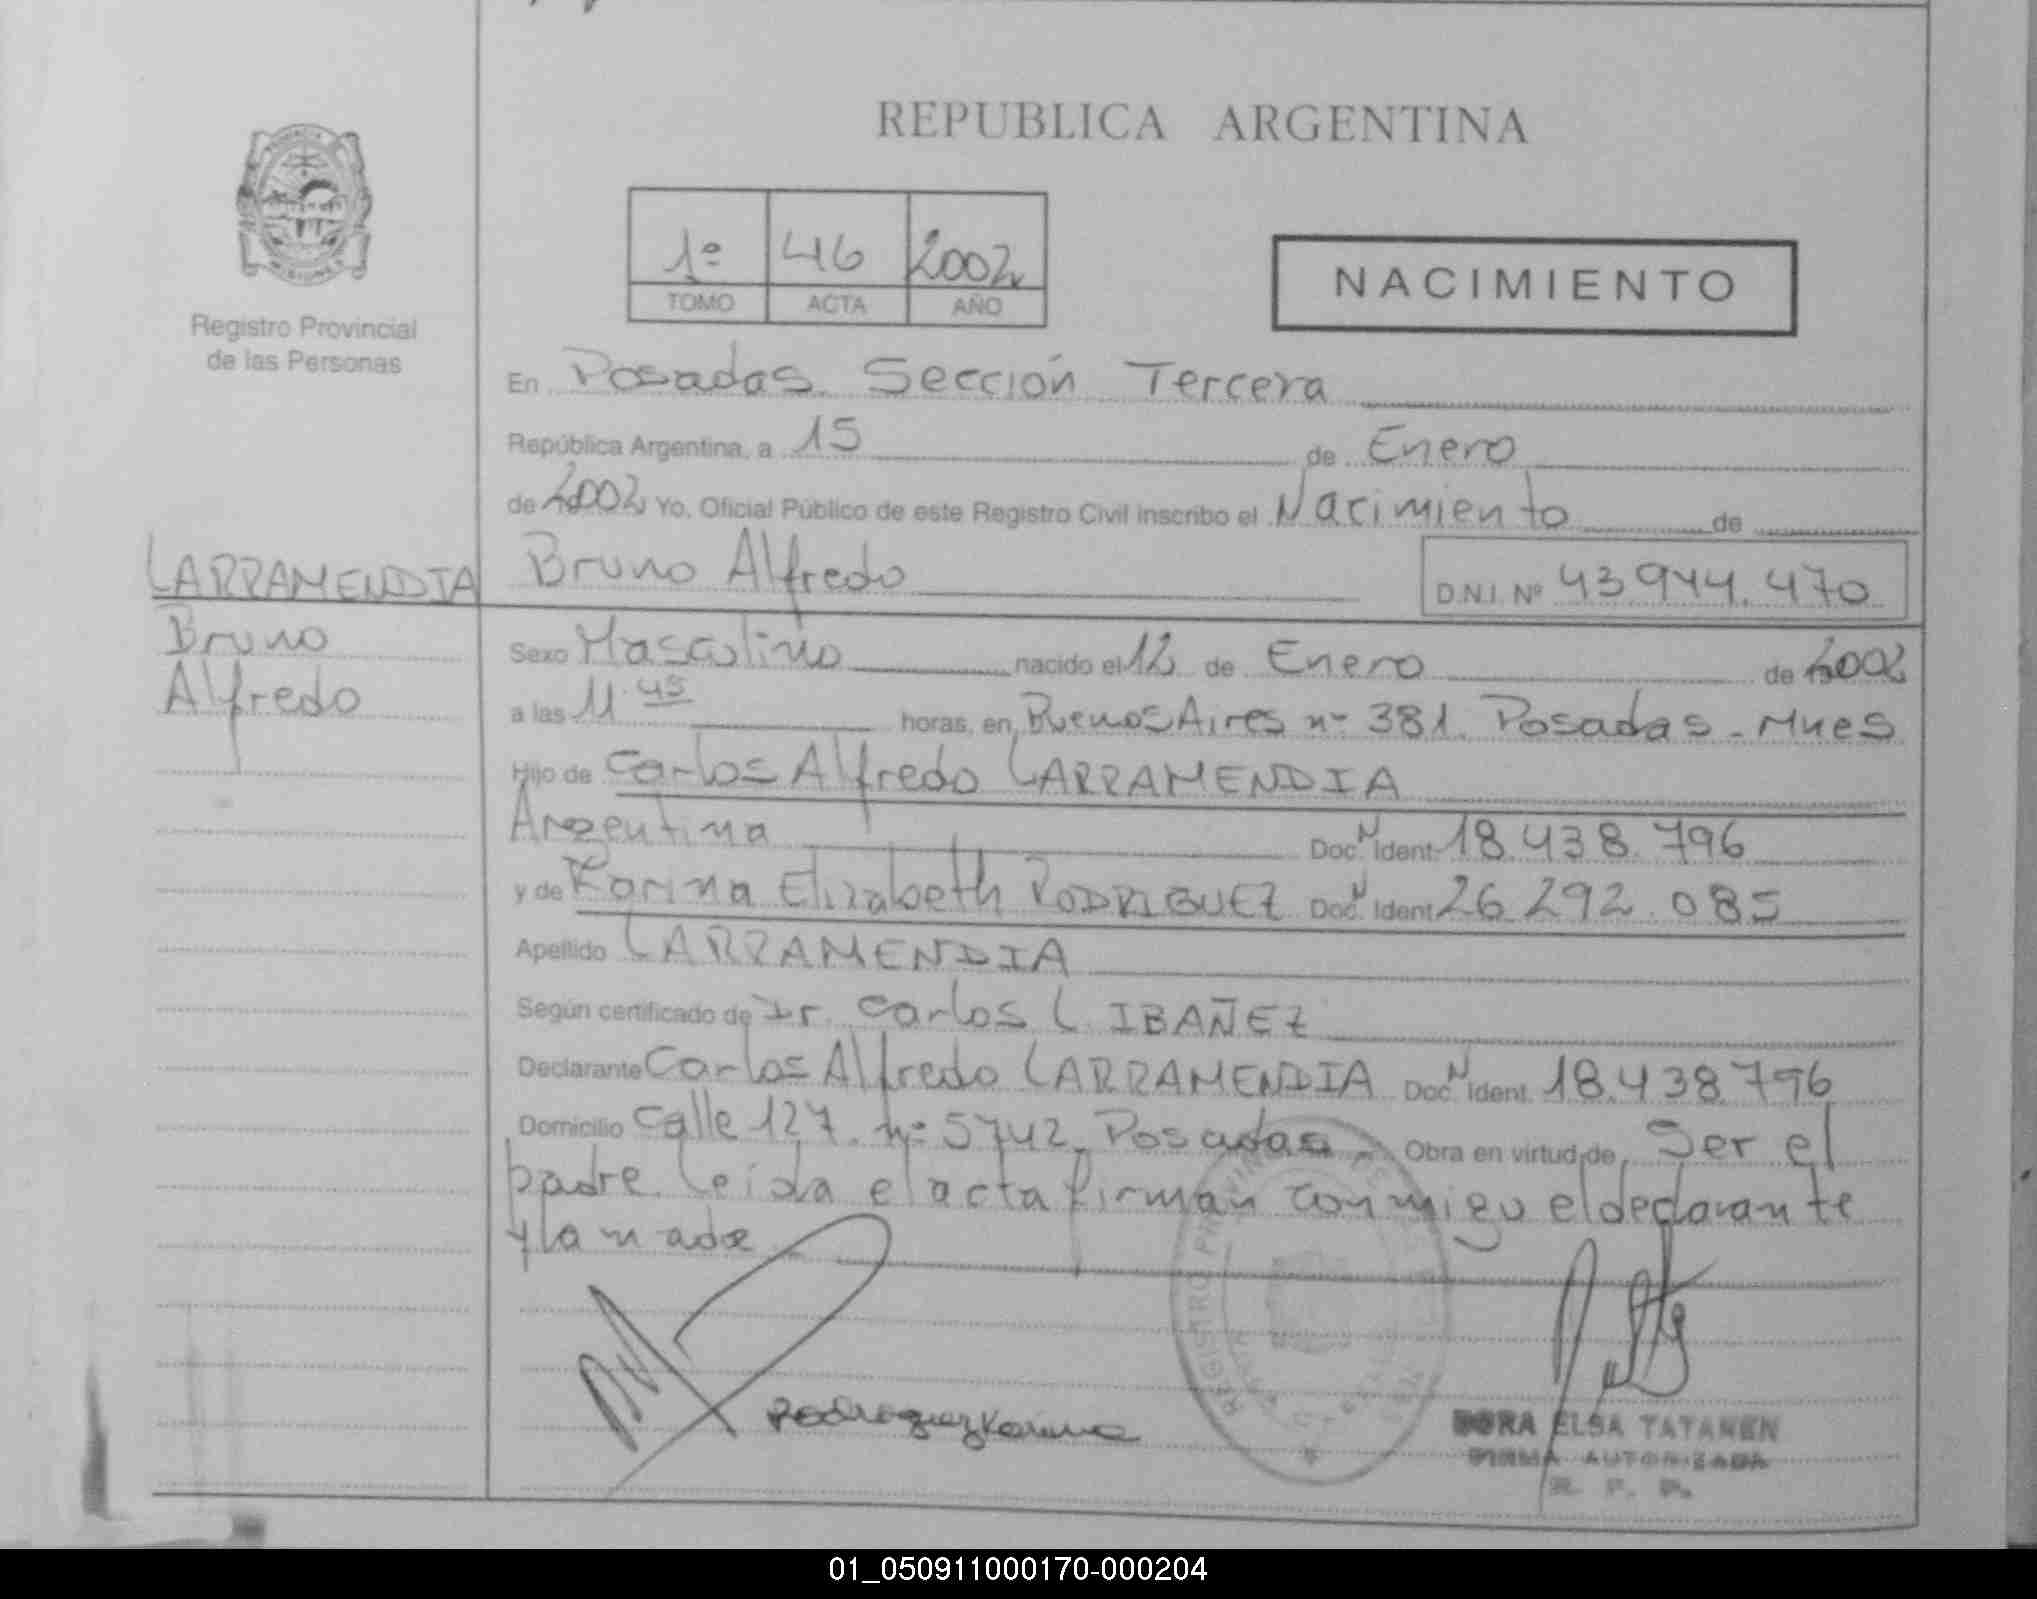 REPUBLICA ARGENTINA
1º 46 2002
TOMO ACTA AÑO
NACIMIENTO
MISIONES
Registro Provincial
de las Personas
En Posadas. Sección Tercera
República Argentina, a 15 de Enero
de 2002 Yo, Oficial Público de este Registro Civil inscribo el Nacimiento de
LARRAMENDIA Bruno Alfredo D.N.I. Nº 43.944.470
Bruno
Alfredo
Sexo Masculino nacido el 12 de Enero de 2002
a las 11.45 horas, en Buenos Aires nº 381. Posadas - Mnes
Hijo de Carlos Alfredo LARRAMENDIA
Argentina Doc. N Ident. 18.438.796
y de Karina Elizabeth RODRIGUEZ Doc. N Ident. 26.292.085
Apellido LARRAMENDIA
Según certificado de Dr. Carlos L. IBAÑEZ
Declarante Carlos Alfredo LARRAMENDIA Doc. N Ident. 18.438.796
Domicilio Calle 127. nº 5742. Posadas Obra en virtud de Ser el
padre. Leida el acta firman conmigo el declarante
y la madre
Rodriguez Karina
REGISTRO
DORA ELSA TATAREN
FIRMA AUTORIZADA
R. P. P.
01_050911000170-000204